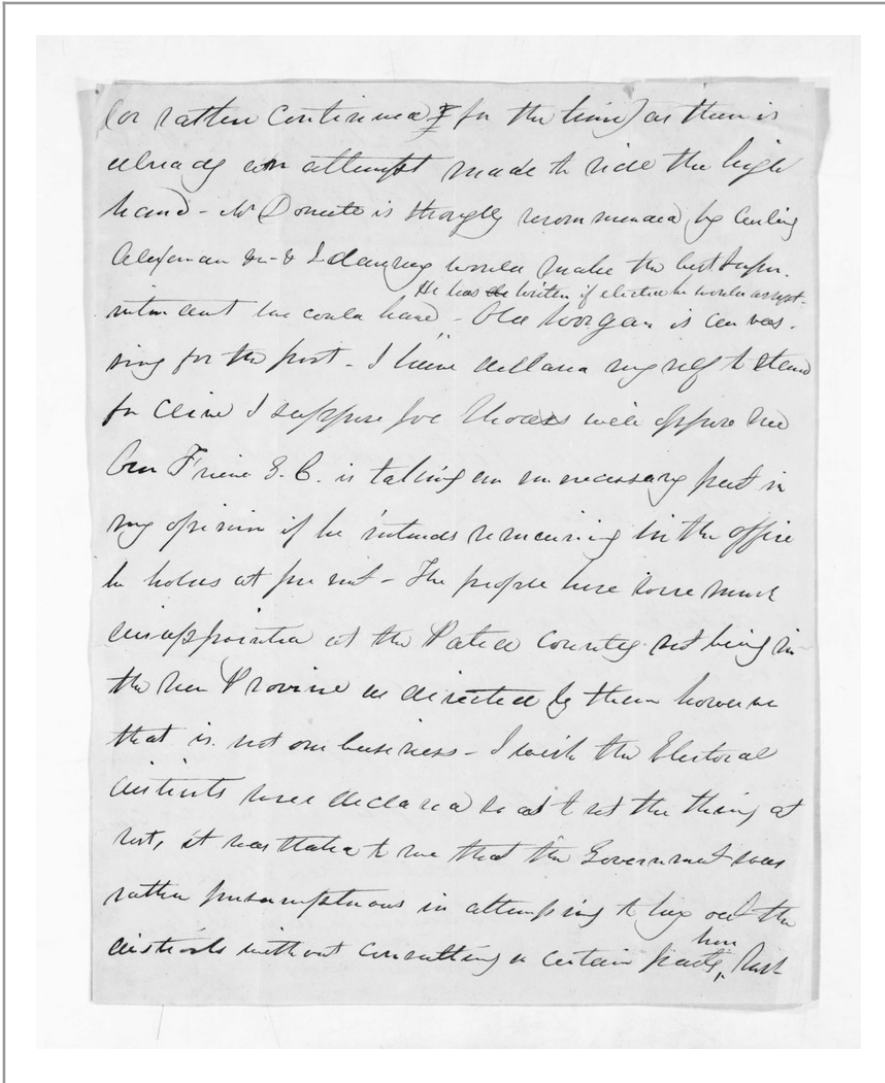 (or rather continued for the time) as there is
already an attempt made to ride the high
hand - is strongly recommended by
Alexander & would make the best Superin-
He has written if elected he would accept -
tendent we could have - Old Morgan is canvas-
sing for the post - I have declared myself to stand
for Clive I suppose Joe Rhodes will oppose me
Our Friend E. C. is taking an unnecessary part in
my opinion if he intends remaining in the office
he holds at present - The people here were much
disappointed at the Patea County not being in
the new Province as directed by them however
that is not our business - I wish the Electoral
districts were declared so as to set the thing at
rest, it was stated to me that the Government was
rather presumptuous in attempting to lay out the
here
districts without consulting a certain party, such